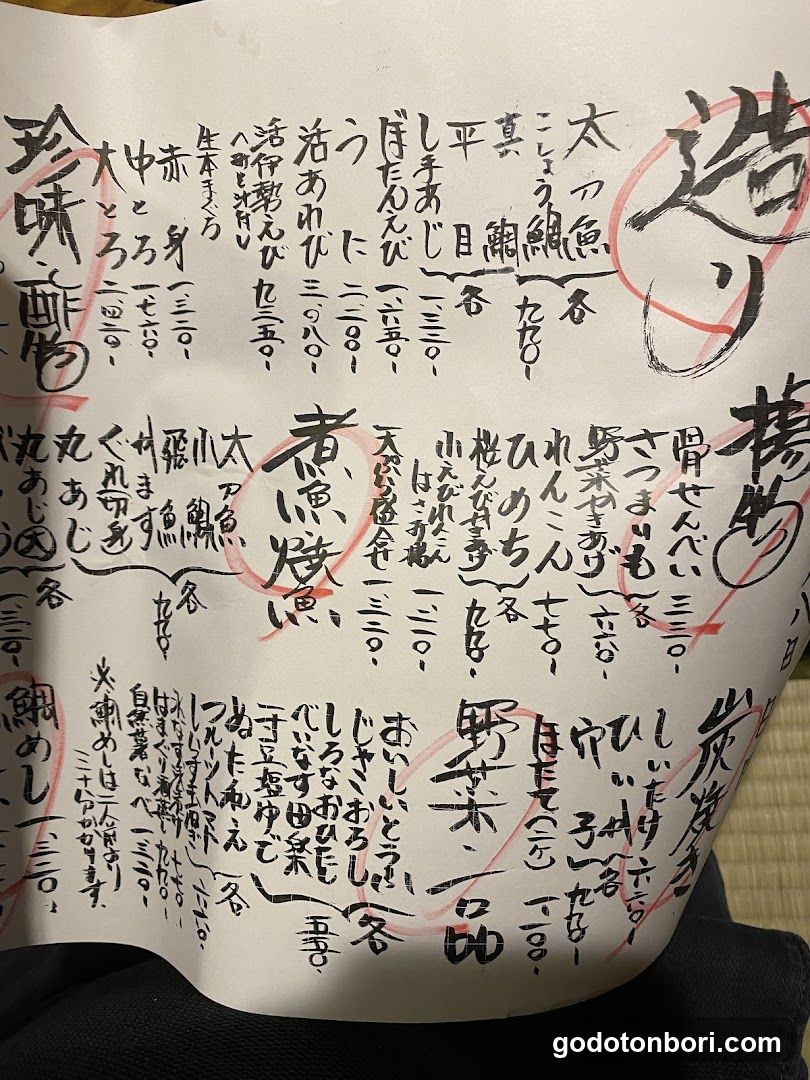 造り
太刀魚
こしょう鯛
各
真鯛
九九〇-
平目
各
しまあじ
一、三二〇-
ぼたんえび
一、六五〇-
うに
二、二〇〇-
活あわび
三、〇八〇-
活伊勢えび
九三五〇-
生本まぐろ
赤身
一、三二〇-
中とろ
一、七六〇-
大とろ
二、四二〇-
珍味・酢物
揚物
骨せんべい
三三〇-
さつまいも
各
野菜かきあげ
六六〇-
れんこん
七七〇-
ひめち
各
桜えびかきあげ
九九〇-
小えびれんこん
はさみ揚
一、二一〇-
天ぷら盛合せ
一、三二〇-
煮魚・焼魚
太刀魚
小鯛
各
飛魚
九九〇-
ぐれ切身
丸あじ
各
丸あじ大
一、三二〇-
八日
炭焼き
しいたけ
六六〇-
穴子
各
九九〇-
ほたて(二ケ)
一、一〇〇-
野菜・一品
おいしいとうふ
各
じゃこおろし
しろなおひたし
五五〇-
べいなす田楽
一寸豆塩ゆで
ぬたあえ
各
フルーツトマト
六六〇-
七七〇-
はまぐり酒蒸し
九九〇-
自然薯なべ
一、三二〇-
※鯛めしは二人前より
三十分かかります。
鯛めし
一、三二〇-
godotonbori.com